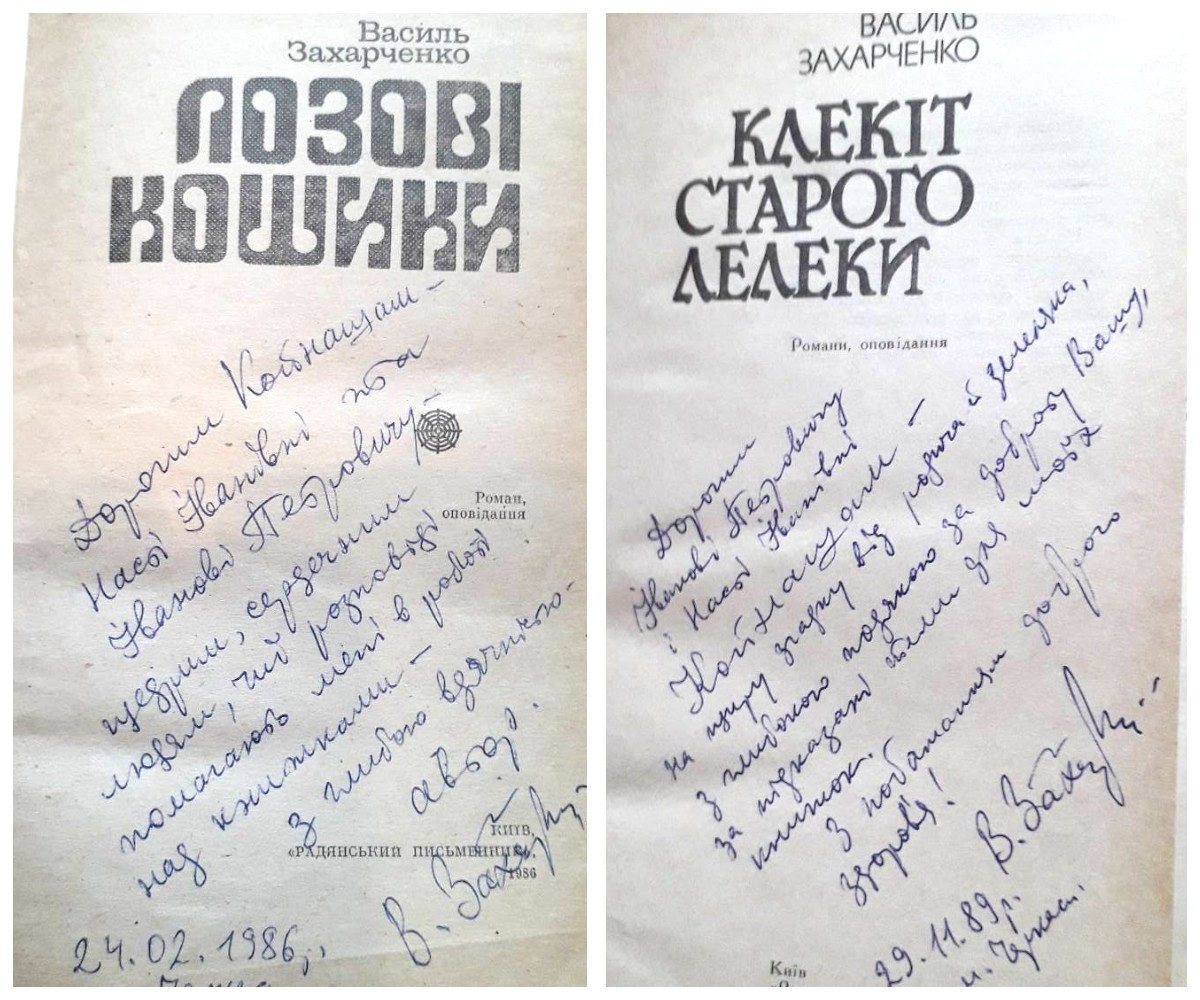 Василь
Захарченко
ЛОЗОВІ
КОШИКИ
Дорогим Койнашам –
Насті Іванівні та
Іванові Петровичу –
щедрим, сердечним
людям, чиї розповіді
помагають мені в роботі
над книжками –
з глибокою вдячністю –
автор.
В. Заха
24.02.1986,
Роман,
оповідання
КИЇВ,
«РАДЯНСЬКИЙ ПИСЬМЕННИК»,
1986
ВАСИЛЬ
ЗАХАРЧЕНКО
КЛЕКІТ
СТАРОГО
ЛЕЛЕКИ
Романи, оповідання
Дорогим
Іванові Петровичу
і Насті Іванівні
Койнашам –
на щиру згадку від родича й земляка,
з глибокою подякою за доброту Вашу,
за підказані теми для моїх
книжок.
З побажанням доброго
здоров'я!
В. Заха
29.11.89 р.
м. Черкаси.
Київ